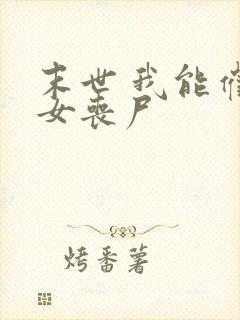 末世我能
女喪尸
烤番薯